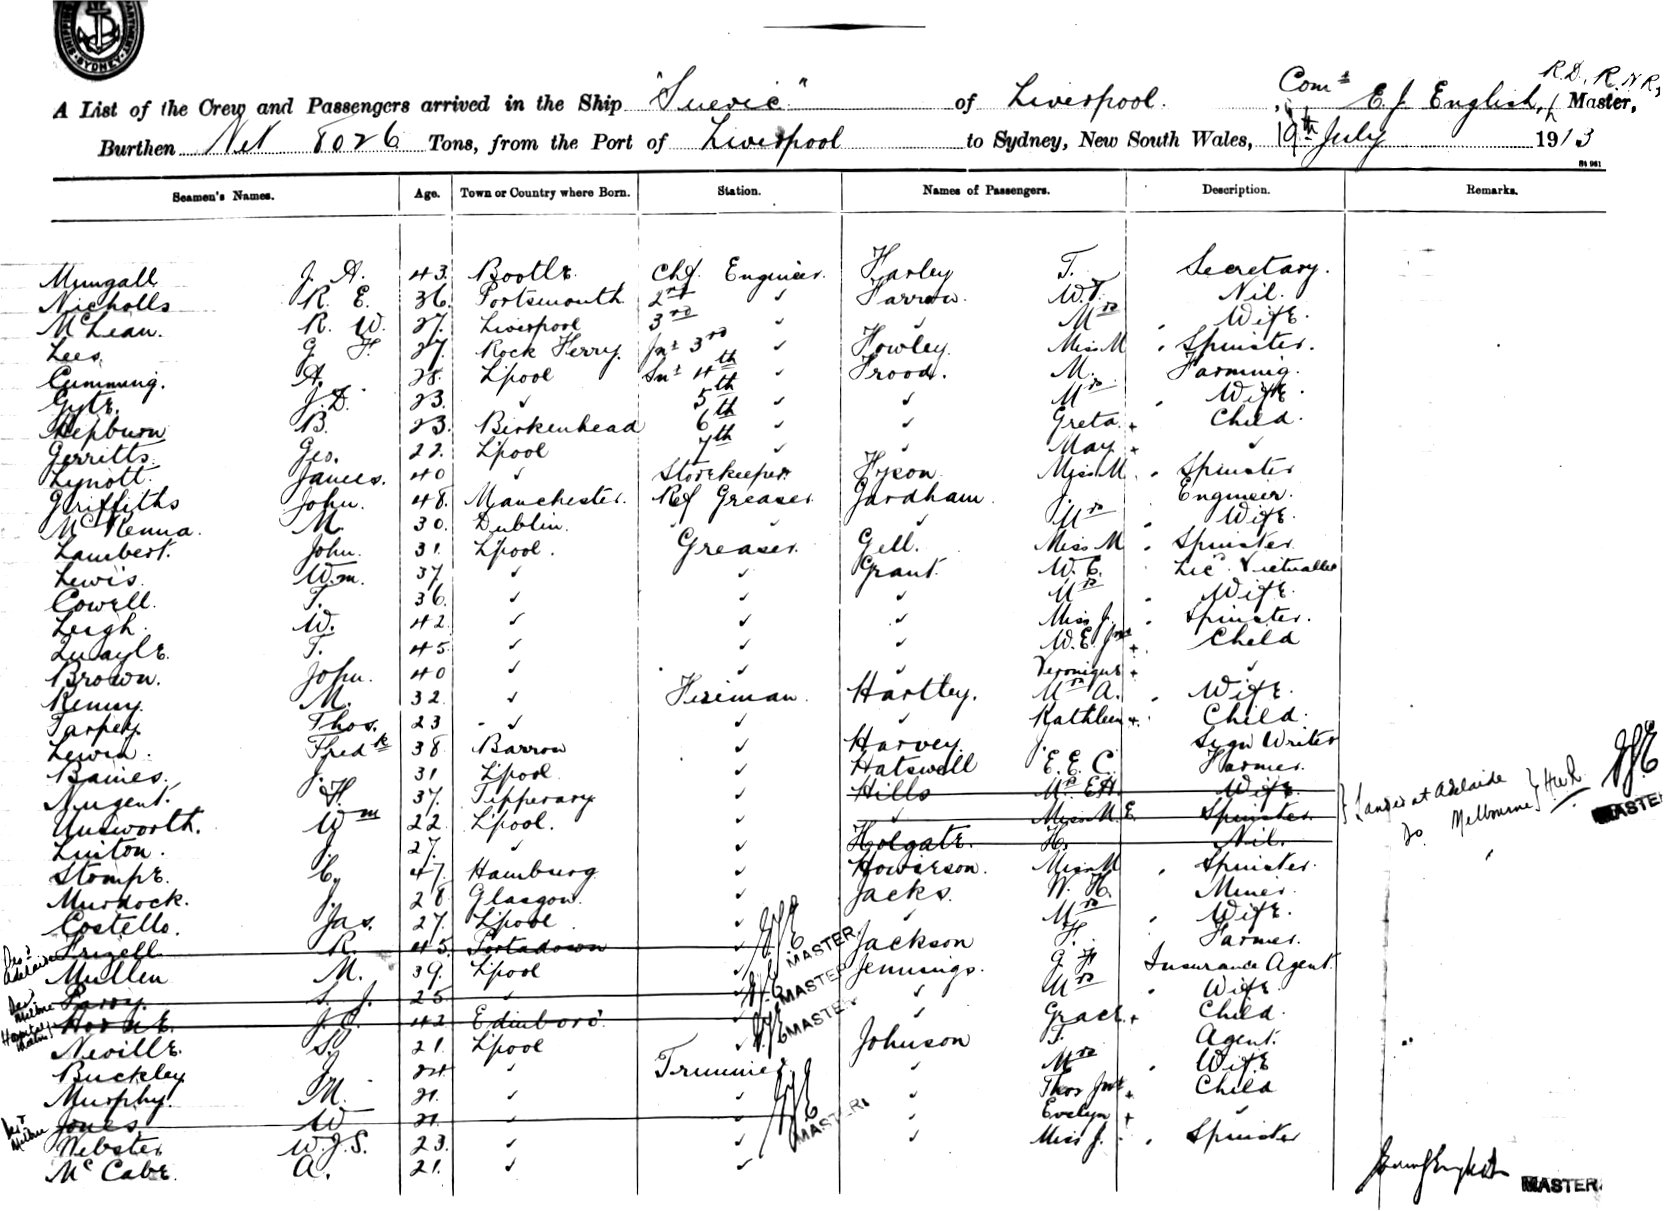 SHIPPING DEPARTMENT SYDNEY
R.D., R.N.R,
A List of the Crew and Passengers arrived in the Ship "Suevic" of Liverpool. Comr E J English, Master,
Burthen Net 8026 Tons, from the Port of Liverpool to Sydney, New South Wales, 19th July 1913
St 961
Seamen's Names. Age. Town or Country where Born. Station. Names of Passengers. Description. Remarks.
Mungall J. A. 43. Bootle. Chf. Engineer. Farley T. Secretary.
Nicholls R. E. 36. Portsmouth 2nd ✓ Farrow. W.T. Nil.
McLean. R. W. 27. Liverpool 3rd ✓ ✓ Mrs Wife.
Lees G H 27. Rock Ferry. Jnr 3rd ✓ Fowley. Miss M Spinster.
Cumming. A. 28. L'pool Snr 4th Frood. M. Farming.
Gyte. J.D. 23. ✓ 5th ✓ Mrs Wife.
Hepburn B. 23. Birkenhead 6th ✓ ✓ Greta + Child.
Gerritts. Geo. 22. L'pool 7th ✓ ✓ May + ✓
Lynott. James. 40 ✓ Storekeeper. Fyson. Miss M. Spinster
Griffiths John. 48. Manchester. Ref Greaser Jardham. J. Engineer.
McKenna. M. 30. Dublin. ✓ ✓ ✓ Mrs Wife.
Lambert. John. 31. L'pool. Greaser. Gell. Miss M Spinster.
Lewis. Wm. 37 ✓ ✓ Grant. W. E. Lic. Victualler
Cowell. T. 36. ✓ ✓ ✓ Mrs Wife.
Leigh. W. 42. ✓ ✓ ✓ Miss J. Spinster.
Quayle. T. 45. ✓ ✓ ✓ W.E. Jnr + Child
Brown. John. 40 ✓ ✓ ✓ Veronique + ✓
Kenny. M. 32. ✓ Fireman. Hartley. Mrs A. Wife.
Tarpey. Thos. 23 ✓ ✓ ✓ Kathleen + Child.
Lewin. Fredk 38. Barrow ✓ Harvey. J. Sign Writer
Baines. J. 31 L'pool. ✓ Hatswell E. E. C. Farmer.
Nugent. H. 37. Tipperary ✓ Hills Mrs E.H. Wife. } Landed at Adelaide
Unsworth. Wm 22. L'pool. ✓ ✓ Miss M. E. Spinster. Do Melbourne MASTER
Linton. J 27. ✓ ✓ Holgate. H. Nil.
Stompe. C. 47. Hamburg ✓ Howieson. Miss M Spinster.
Murdock. J. 28. Glasgow. ✓ Jacks. W. H. Miner.
Costello. Jas. 27. L'pool ✓ ✓ Mrs Wife.
Adelaide Frizell R. 45. Portadown ✓ MASTER. Jackson F. Farmer.
Mullen M. 39. L'pool ✓ MASTER Jennings. G H Insurance Agent.
Parry. S. J. 25. ✓ ✓ MASTER ✓ Mrs Wife.
Hospital Horne. J. G. 42 Edinboro'. ✓ ✓ Grace + Child.
Neville. S. 21. L'pool ✓ Johnson T. Agent.
Buckley J 24. ✓ Trimmer ✓ Mrs Wife
Murphy. M. 21. ✓ ✓ ✓ Thos Jnr + Child
Jones W 21. ✓ ✓ MASTER. ✓ Evelyn + ✓
Webster W.J.S. 23. ✓ ✓ ✓ Miss J. Spinster
McCabe. A. 21. ✓ ✓
MASTER.